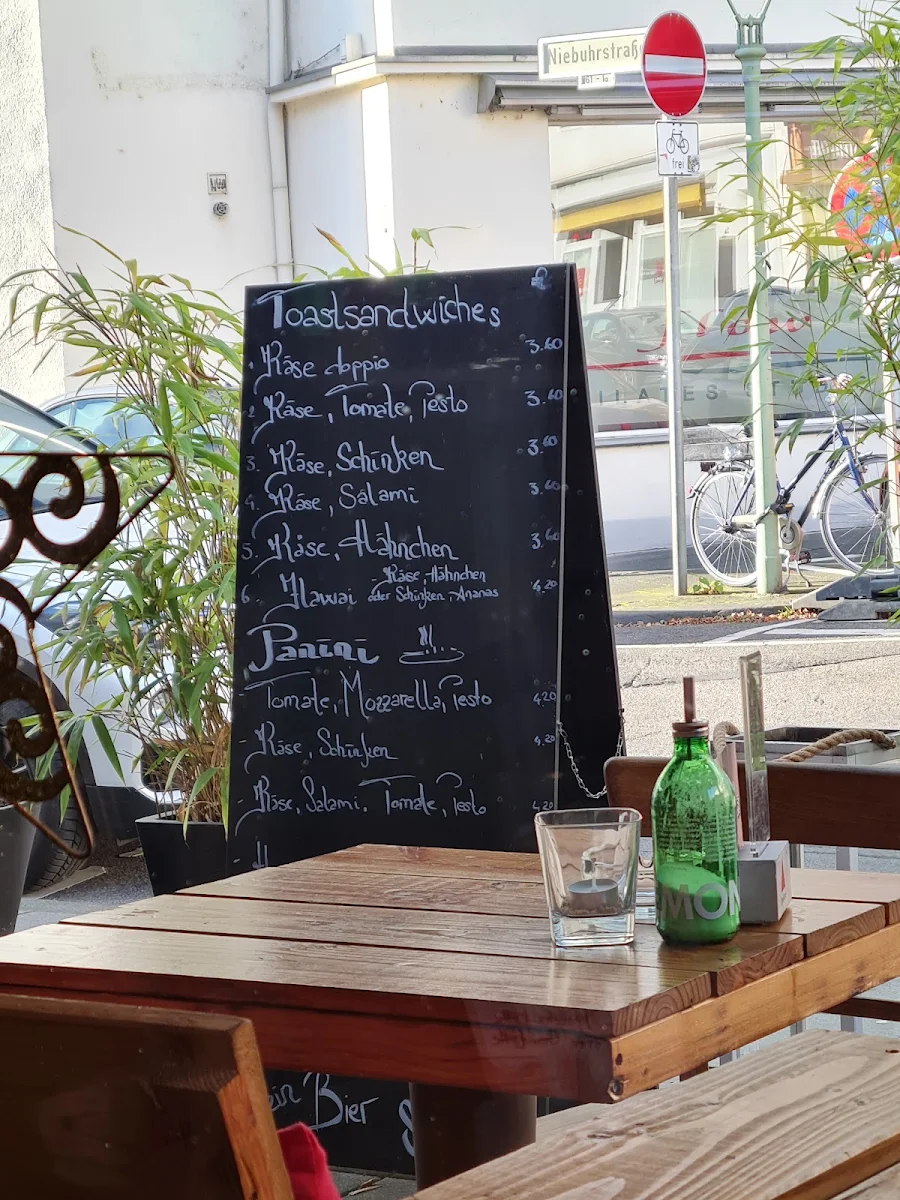 Niebuhrstraße
frei
Toastsandwiches
1. Käse doppio 3.60
2. Käse, Tomate, Pesto 3.60
3. Käse, Schinken 3.60
4. Käse, Salami 3.60
5. Käse, Hähnchen 3.60
6. Hawai - Käse, Hähnchen 4.20
oder Schinken, Ananas
Panini
- Tomate, Mozzarella, Pesto 4.20
- Käse, Schinken 4.20
- Käse, Salami, Tomate, Pesto 4.20
MON
Bier